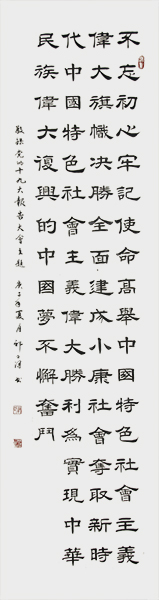 不忘初心牢記使命高舉中國特色社會主義
偉大旗幟決勝全面建成小康社會奪取新時
代中國特色社會主義偉大勝利為實現中華
民族偉大復興的中國夢不懈奮鬥
敬録党的十九大報告大會主題 庚子年夏月